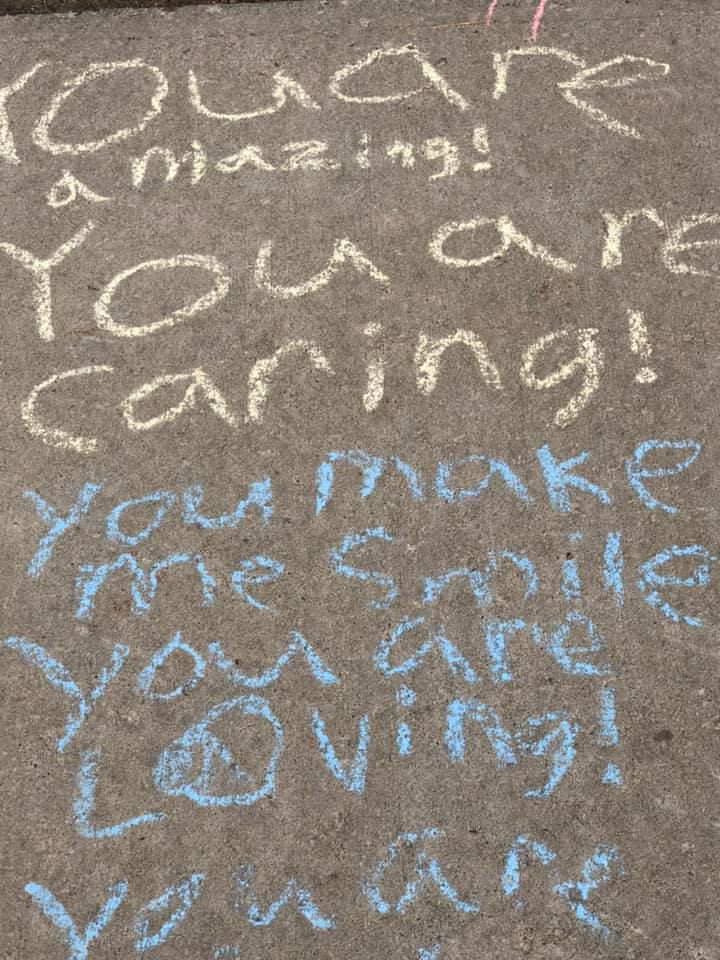 You are
amazing!
You are
caring!
you make
me smile
you are
Loving!
you are